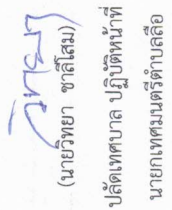 (นายวิทยา ชาลีโสม)
ปลัดเทศบาล ปฏิบัติหน้าที่
นายกเทศมนตรีตำบลลือ